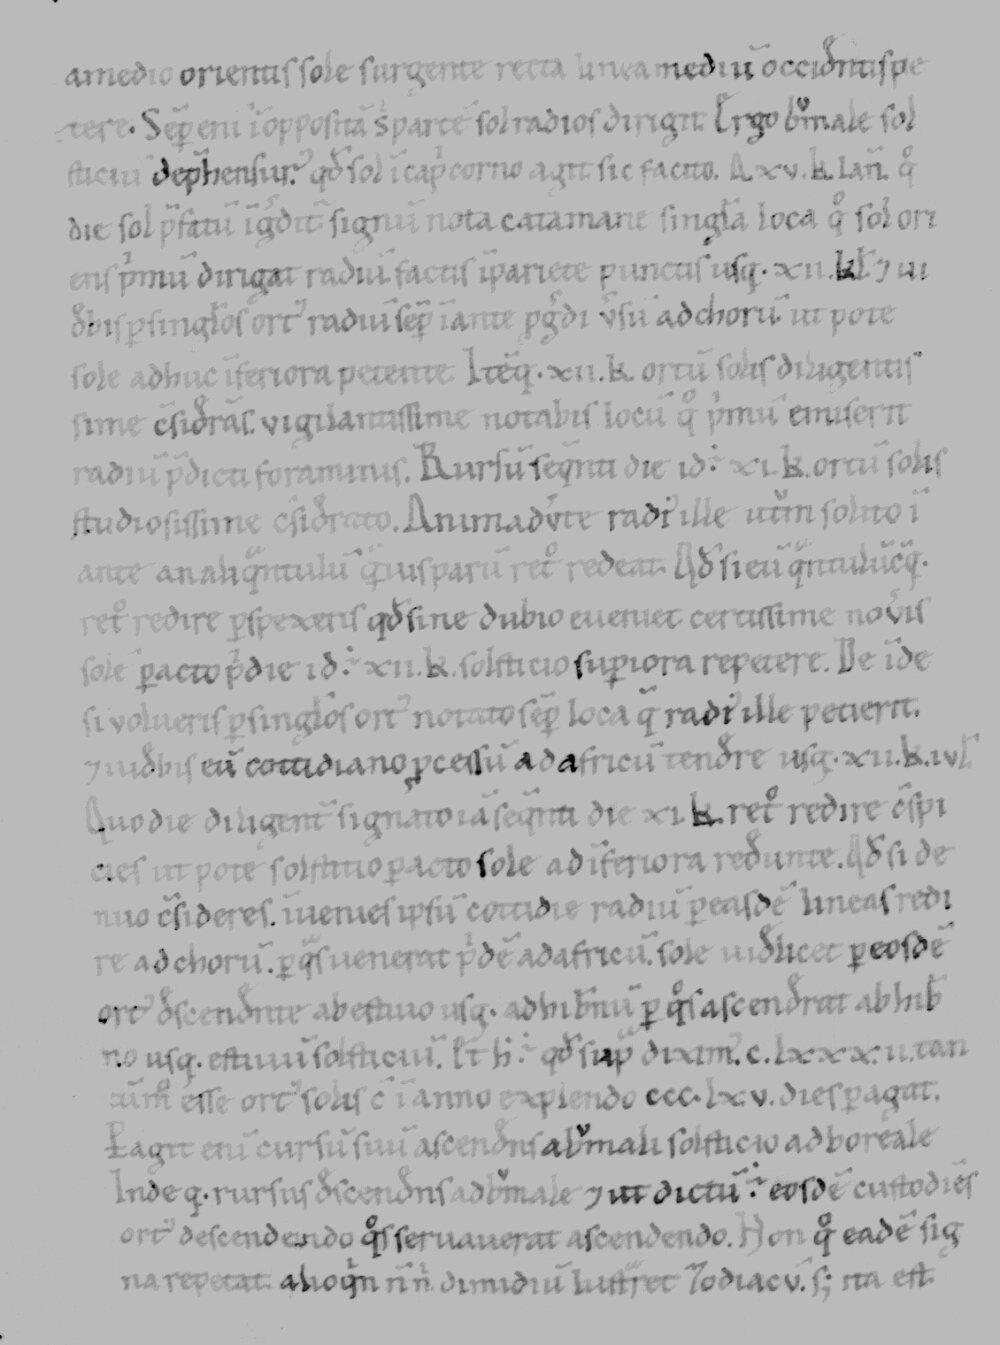 amedio orientis sole surgente recta linea mediū occidn̄tis pe
tere. Sep̄ eni īopposita s parte sol radios dirigit Ergo bͮmale sol
sticiū dep̄hensur᾽ qd̄ sol ī capcorno agit sic facito. A xv. k. Ian̄. qͦ
die sol p̄fatū īgdit᾽ signū nota catamane singl̄a loca qͦ sol ori
ens pͥmū dirigat radiū factis īpariete punctis usq. xii. kl̄ ⁊ ui
d̄bis p singl̄os ort᾽ radiū sep̄ īante pgdi v̄sū ad chorū ut pote
sole adhuc īferiora petente Iteq̄. xii. k. ortū solis diligentis
sime c̄sid̄ras. vigilantissime notabis locū qͦ pͥmū emiserit
radiū p̄dicti foraminis. Rursū seqn̄ti die id: xi. k. ortū solis
studiosissime c̄sid̄rato. Animadv̄te radi᾽ ille utͮm solito ī
ante an aliqn̄tulū q̄uis parū retͦ redeat. Qd̄ si eū qn̄tulūcq̄.
retͦ redire pspexeris qd̄ sine dubio eveniet certissime nov̄is
sole pacto pͥdie id: xii. k. solsticio supiora repetere. De īde
si volueris p singl̄os ort᾽ notato sep̄ loca q̄ radi᾽ ille petierit.
⁊ uid̄bis eū cottidiano pcessū ad africū tend̄re usq. xii. k. ivl̄
Quo die diligent᾽ signato iā seqn̄ti die xi. k. retͦ redire c̄spi
cies ut pote solstitio pacto sole ad īferiora red̄unte. Qd̄ si de
nuo c̄sideres. īuenies ipsū cottidie radiū p easdē lineas redi
re ad chorū. p q̄s uenerat pͥdē ad africū. sole uid̄licet p eosdē
ort᾽ d̄scend̄nte ab estiuo usq. ad hibn̄ū p qͦs ascend̄rat ab hib̄
no usq. estiuū solsticiū. Lͭ h: qd̄ sup̄ diximꝰ. c. lxxx. ii. tan
tūmͦ esse ort᾽ solis c̄ ī anno explendo ccc. lx. v. dies pagat.
Pagit enī cursū suū ascend̄ns a bͮmali solsticio ad boreale
Inde q. rursus d̄scend̄ns ad bͮmale ⁊ ut dictū: eosdē custodiēs
ort᾽ descendendo qͦs servauerat ascendendo. Non qͦ eadē sig
na repetat. alioqͥn nͥnͥ dimidiū lustr̄et Zodiacv̄. s; ita est.